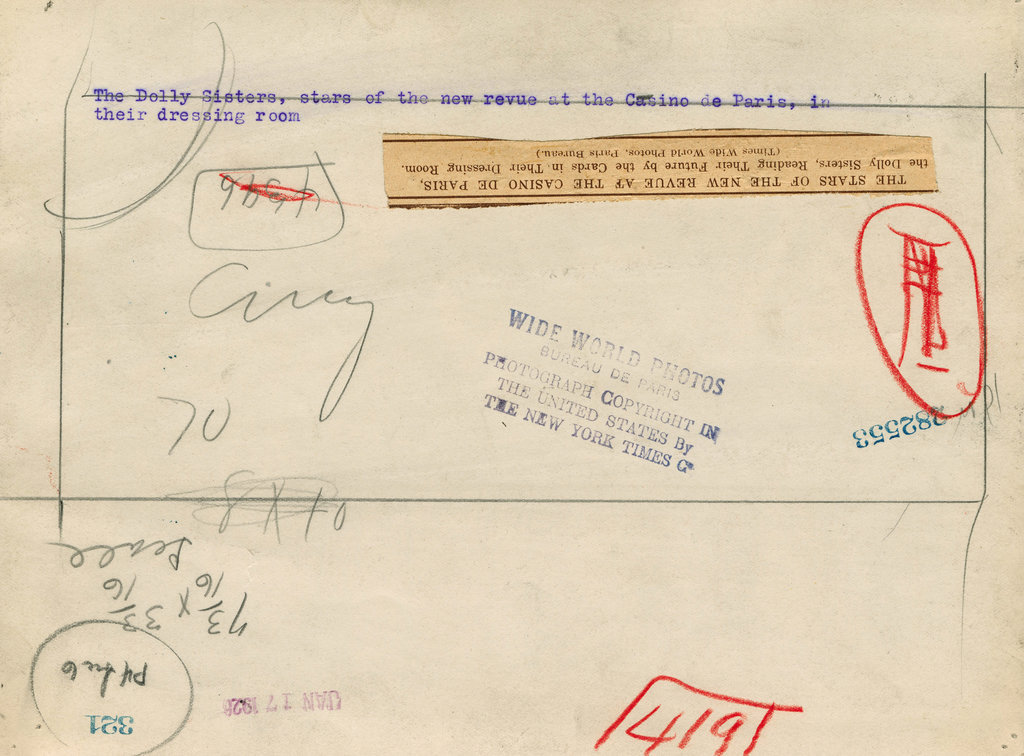 The Dolly Sisters, stars of the new revue at the Casino de Paris, in
their dressing room
THE STARS OF THE NEW REVUE AT THE CASINO DE PARIS,
the Dolly Sisters, Reading Their Future by the Cards in Their Dressing Room.
(Times Wide World Photos, Paris Bureau.)
WIDE WORLD PHOTOS
BUREAU DE PARIS
PHOTOGRAPH COPYRIGHT IN
THE UNITED STATES By
THE NEW YORK TIMES Co
282553
7 3/16 x 3 3/16
321
JAN 17 1926
4191